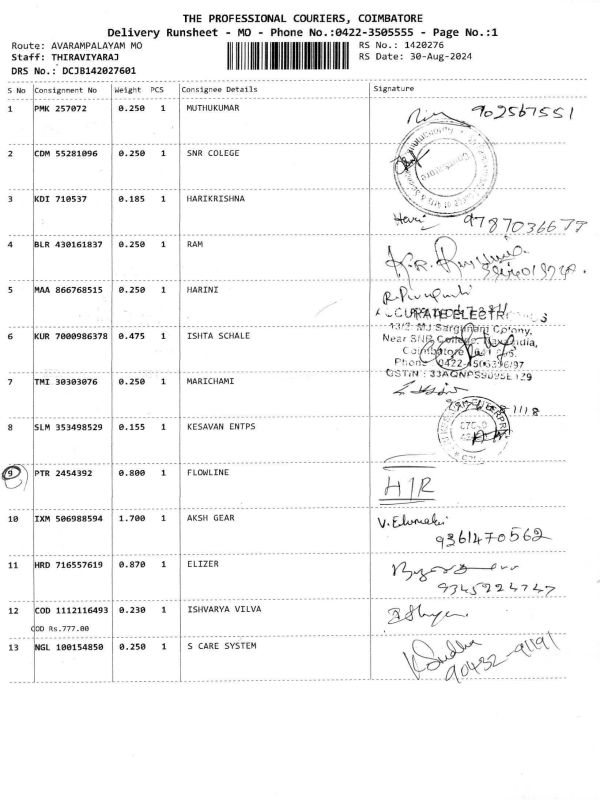 THE PROFESSIONAL COURIERS, COIMBATORE
Delivery Runsheet - MO - Phone No.:0422-3505555 - Page No.:1
Route: AVARAMPALAYAM MO RS No.: 1420276
Staff: THIRAVIYARAJ RS Date: 30-Aug-2024
DRS No.: DCJB142027601
S No Consignment No Weight PCS Consignee Details Signature
1 PMK 257072 0.250 1 MUTHUKUMAR 902567551
2 CDM 55281096 0.250 1 SNR COLEGE
3 KDI 710537 0.185 1 HARIKRISHNA Hari 9787036677
4 BLR 430161837 0.250 1 RAM
5 MAA 866768515 0.250 1 HARINI
ACCURATE ELECTRI
13/2, MJ Sargunam Colony,
6 KUR 7000986378 0.475 1 ISHTA SCHALE Near SNR College, India,
Coimbatore
Phone : 0422-4506396/97
7 TMI 30303076 0.250 1 MARICHAMI GSTIN :
8 SLM 353498529 0.155 1 KESAVAN ENTPS
9 PTR 2454392 0.800 1 FLOWLINE H/R
10 IXM 506988594 1.700 1 AKSH GEAR V. Elumalai
9361470562
11 HRD 716557619 0.870 1 ELIZER
9345224747
12 COD 1112116493 0.230 1 ISHVARYA VILVA
COD Rs.777.00
13 NGL 100154850 0.250 1 S CARE SYSTEM
90432-91191